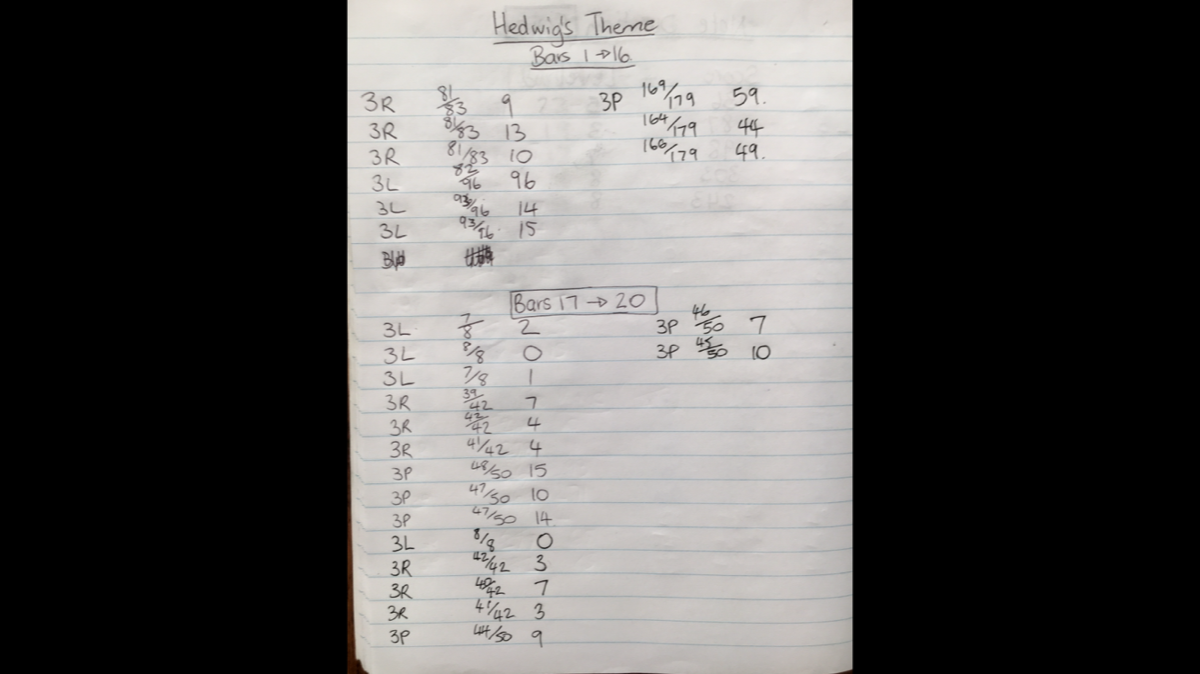 Hedwig's Theme
Bars 1 → 16
3R 81/83 9
3R 81/83 13
3R 81/83 10
3L 82/96 96
3L 93/96 14
3L 93/96 15
3P 169/179 59.
164/179 44
166/179 49.
Bars 17 → 20
3L 7/8 2
3L 8/8 0
3L 7/8 1
3R 39/42 7
3R 42/42 4
3R 41/42 4
3P 48/50 15
3P 47/50 10
3P 47/50 14
3L 8/8 0
3R 42/42 3
3R 40/42 7
3R 41/42 3
3P 44/50 9
3P 46/50 7
3P 45/50 10